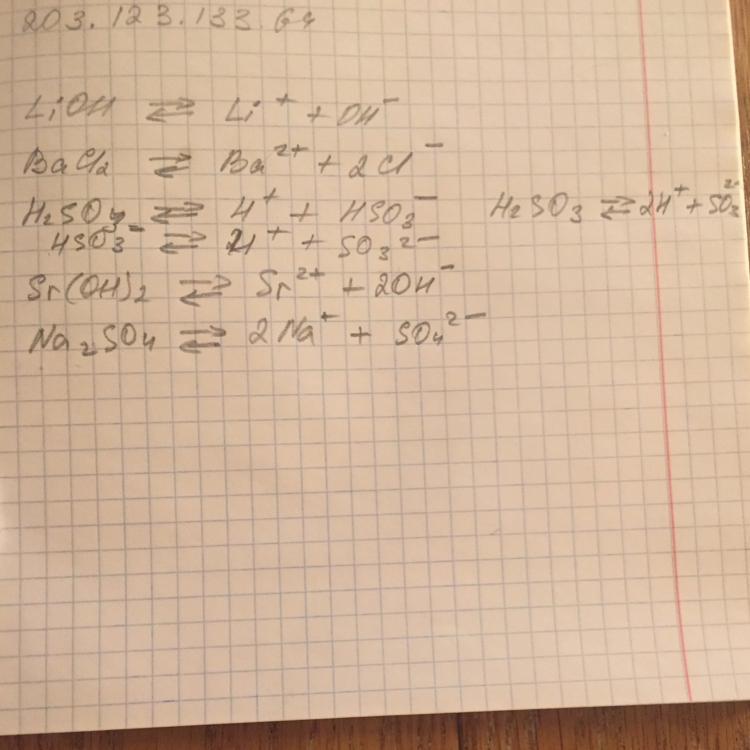 203.123.133.64
LiOH ⇄ Li⁺ + OH⁻
BaCl₂ ⇄ Ba²⁺ + 2Cl⁻
H₂SO₄ ⇄ H⁺ + HSO₃⁻ H₂SO₃ ⇄ 2H⁺ + SO₃²⁻
HSO₃⁻ ⇄ H⁺ + SO₃²⁻
Sr(OH)₂ ⇄ Sr²⁺ + 2OH⁻
Na₂SO₄ ⇄ 2Na⁺ + SO₄²⁻